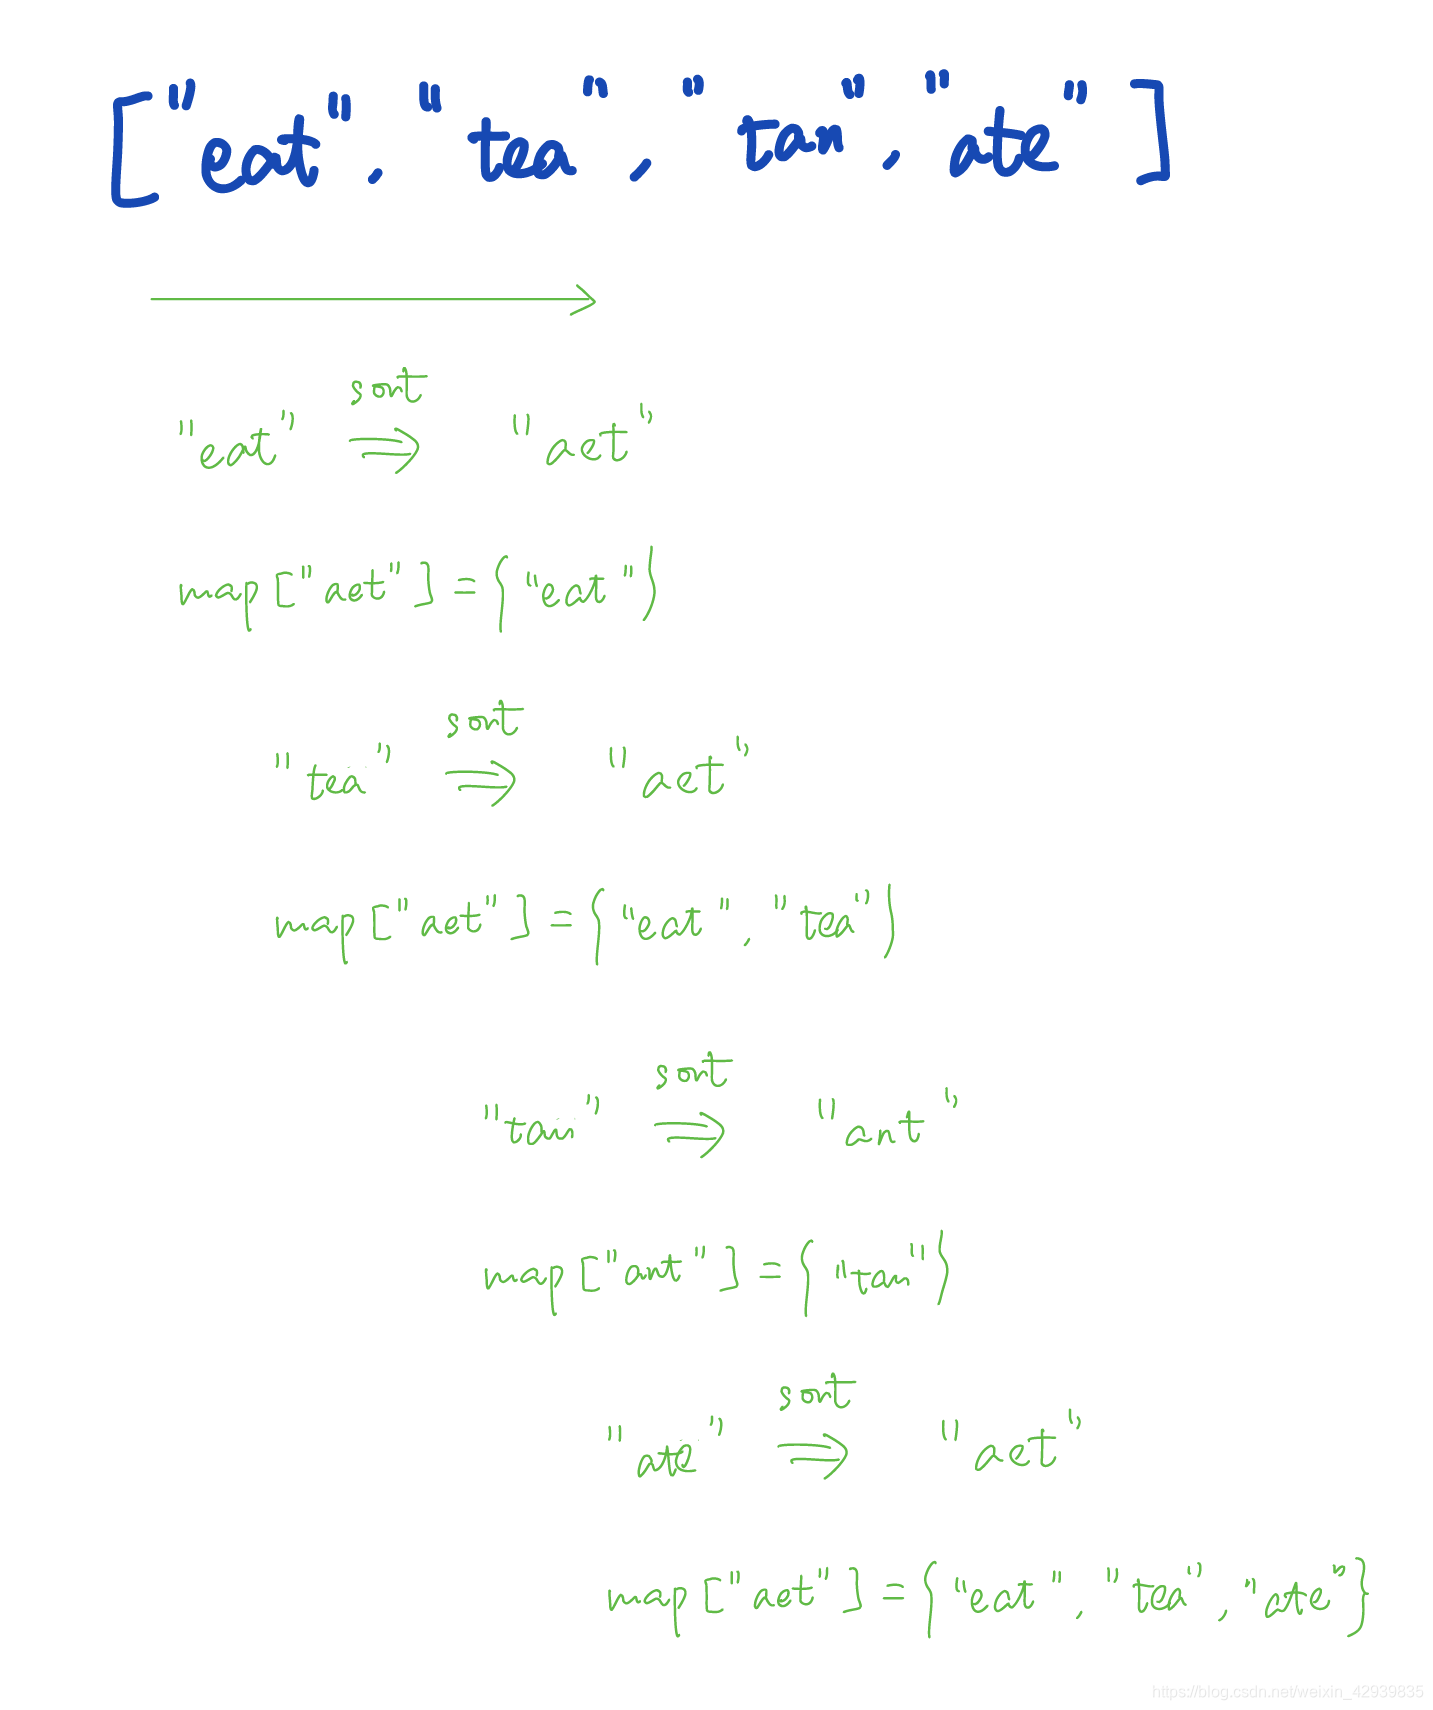 ["eat", "tea", "tan", "ate"]
sort
"eat" ⇒ "aet"
map["aet"]={"eat"}
sort
"tea" ⇒ "aet"
map["aet"]={"eat", "tea"}
sort
"tan" ⇒ "ant"
map["ant"]={"tan"}
sort
"ate" ⇒ "aet"
map["aet"]={"eat", "tea", "ate"}
https://blog.csdn.net/weixin_42939835